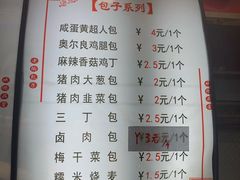 【包子系列】
咸蛋黄超人包 ¥ 4元/1个
奥尔良鸡腿包 ¥ 3元/1个
麻辣香菇鸡丁 ¥ 2.5元/1个
猪肉大葱包 ¥ 2元/1个
猪肉韭菜包 ¥ 2元/1个
三丁包 ¥ 2.5元/1个
卤肉包 ¥3元/个
梅干菜包 ¥ 2.5元/1个
糯米烧麦 ¥ 1.5元/1个